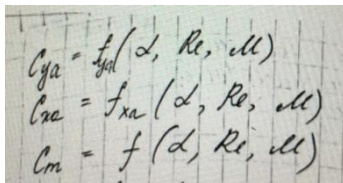 Cya = fya(α, Re, M)
Cxa = fxa (α, Re, M)
Cm = f (α, Re, M)